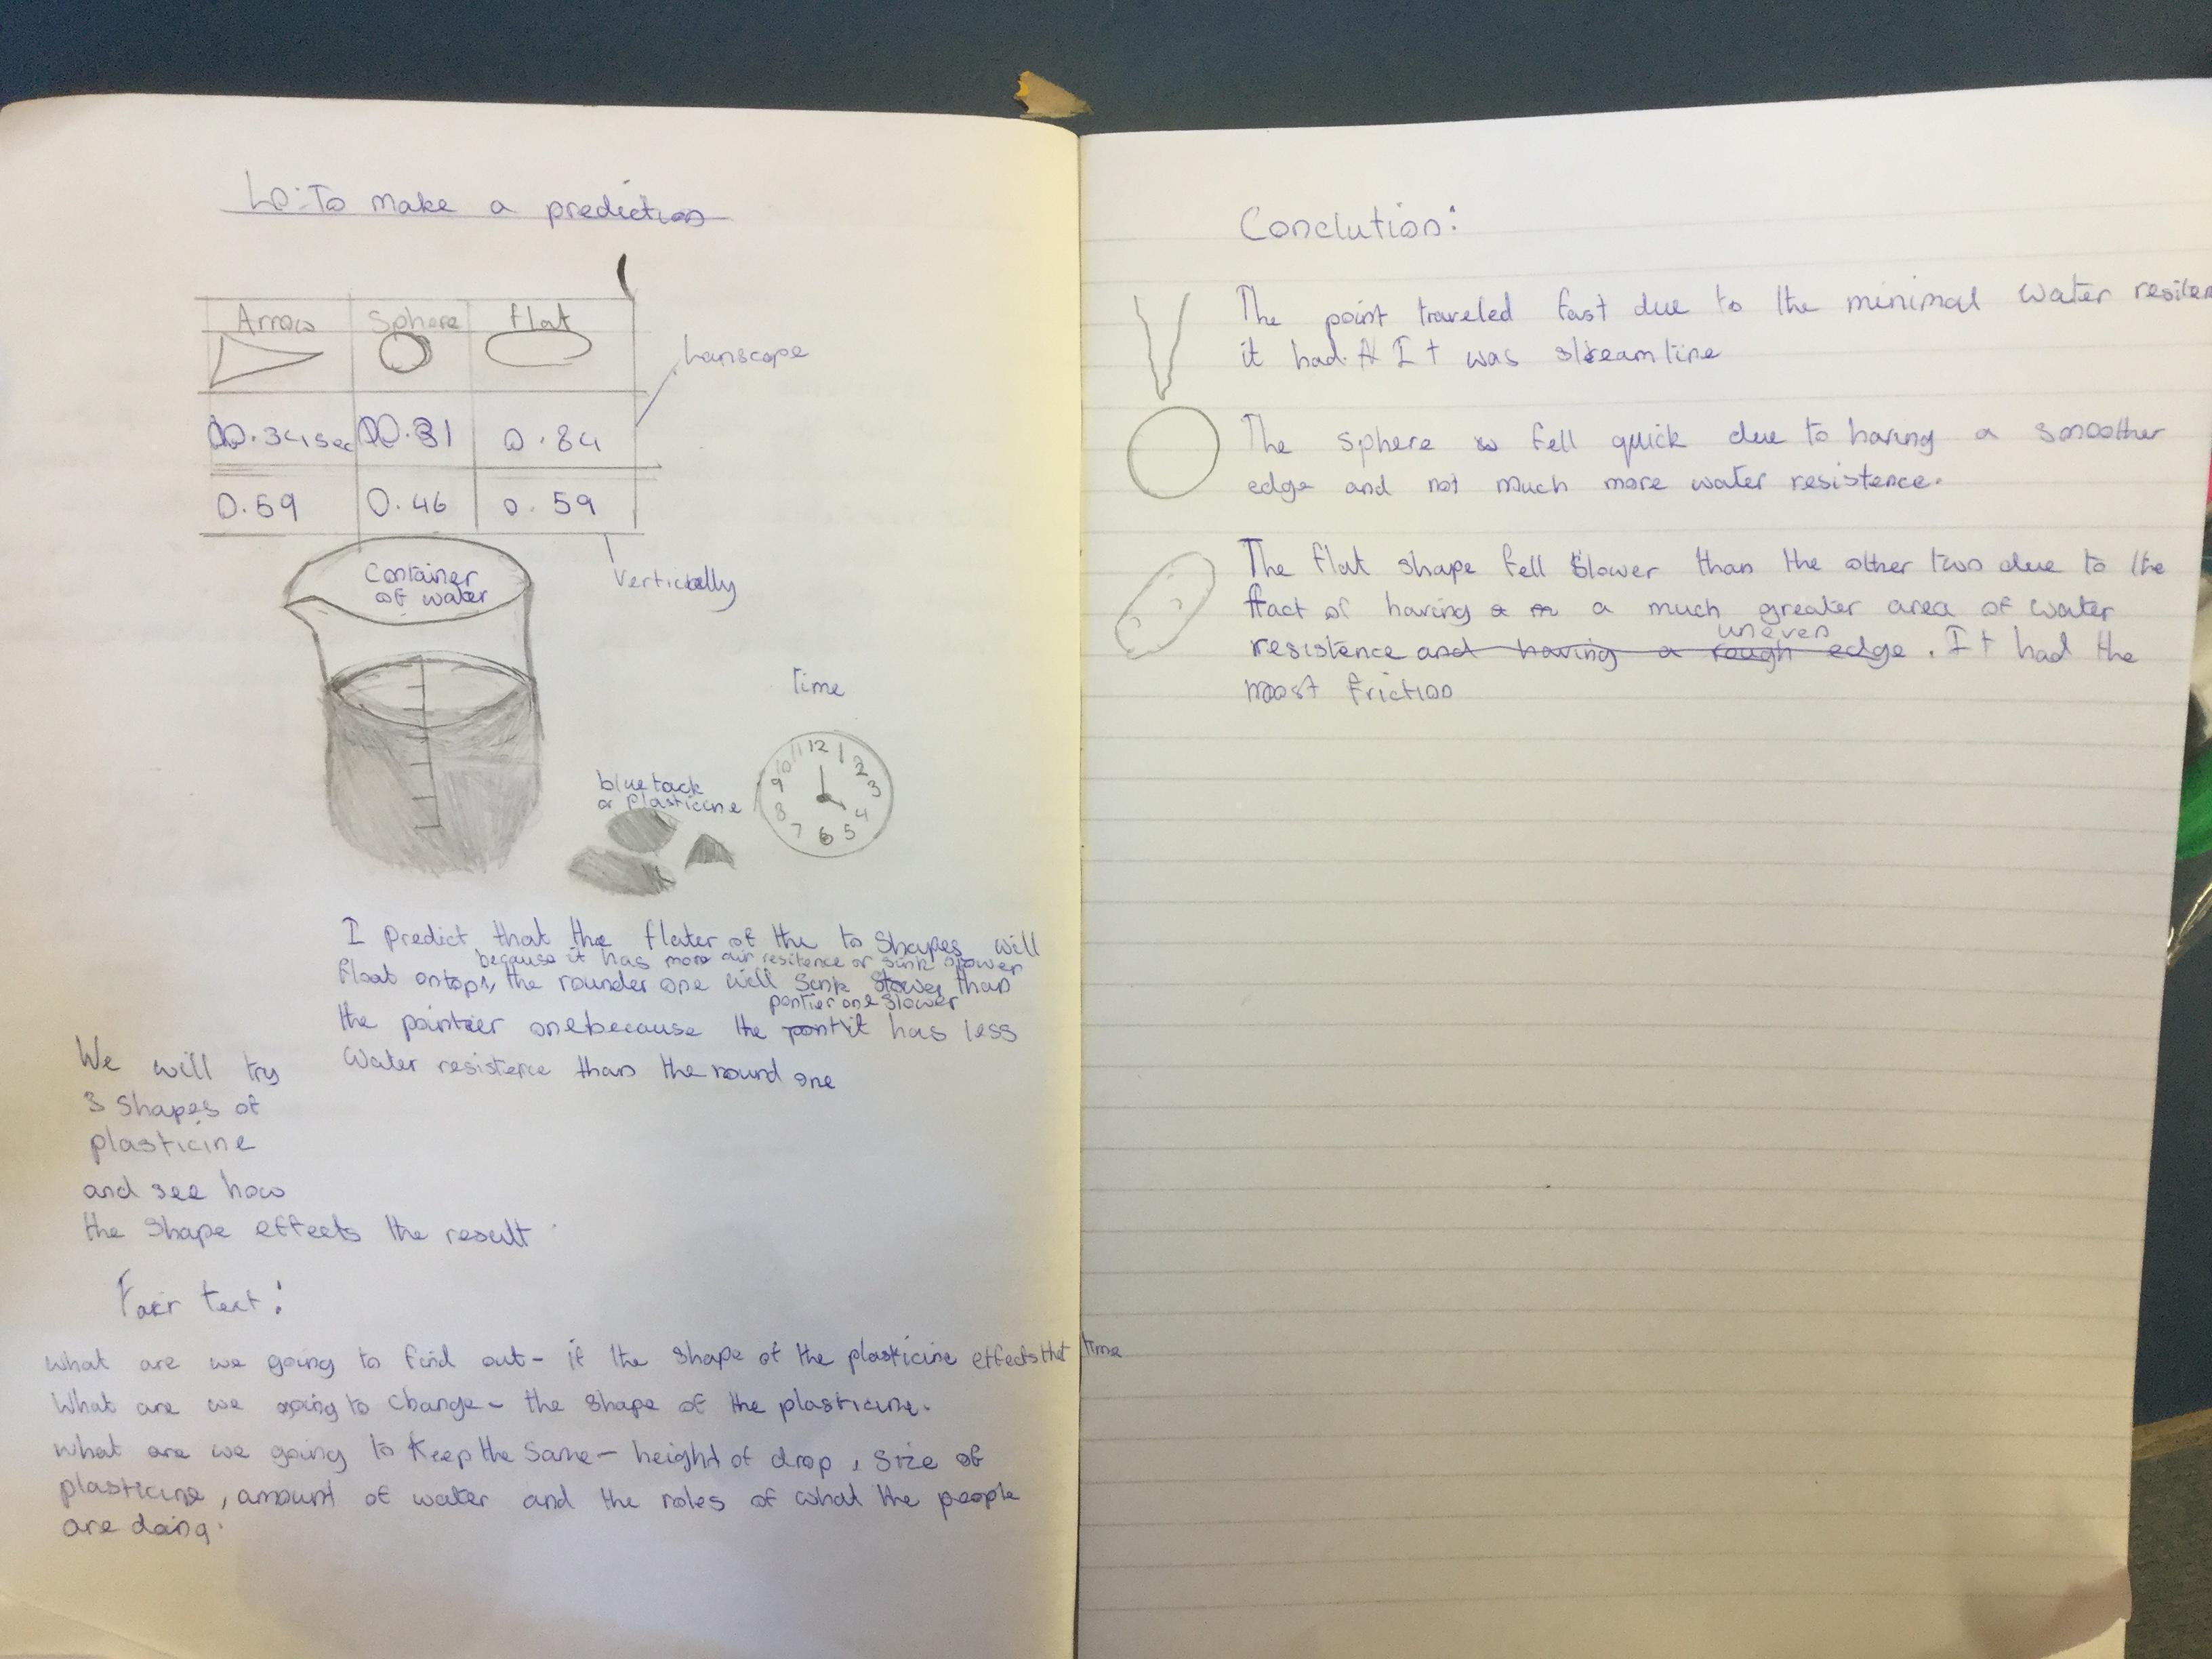 Lo: To make a prediction
Arrow Sphere flat
00.34sec 00.81 0.84
0.59 0.46 0.59
lanscape
Verticelly
Container
of water
time
12 1 2 3 4 5 6 7 8 9 10 11
blue tack
or plasticine
I predict that the flater of the to shapes will
because it has more air resitence or sink slower
float ontop, the rounder one will sink slower than
pontier one slower
the pointier one because the pont it has less
Water resistence than the round one
We will try
3 shapes of
plasticine
and see how
the shape effects the result
Fair test:
What are we going to find out - if the shape of the plasticine effects the time
What are we going to change - the shape of the plasticine.
What are we going to keep the same - height of drop, size of
plasticine, amount of water and the roles of what the people
are doing.
Conclution:
The point traveled fast due to the minimal water resiten
it had. It was streamline
The sphere fell quick due to having a smoother
edge and not much more water resistence.
The flat shape fell slower than the other two due to the
fact of having a much greater area of water
uneven
resistence and having a rough edge. It had the
most friction